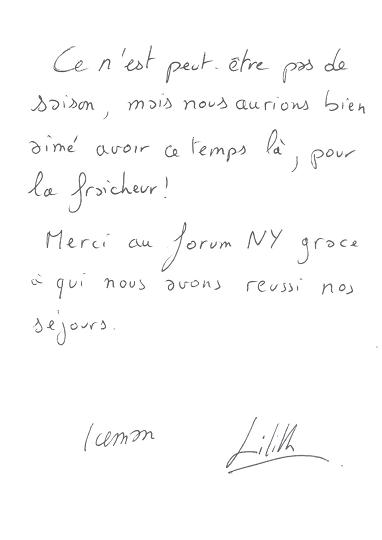 Ce n'est peut-être pas de
saison, mais nous aurions bien
aimé avoir ce temps là, pour
la fraîcheur!
Merci au forum NY grace
à qui nous avons reussi nos
séjours.
Iceman Lilith